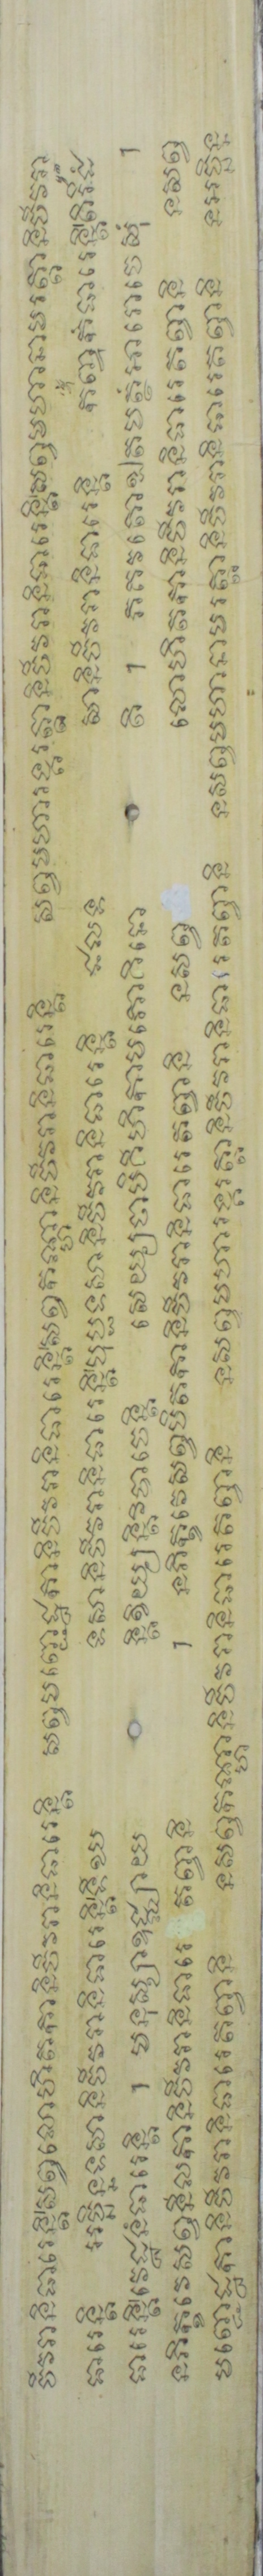 ចីវរានិធារេន្តិសព្វលោហិតកានិចីវរានិធារេន្តិ សព្វមញ្ជេដ្ឋកានិចីវរានិធារេន្តិសព្វកណ្ហានិចីវរានិធារេន្តិ សព្វមហារង្គរត្តានិចីវរានិធារេន្តិសព្វមហានាមរត្តានិចីវរា
ធារេន្តិ អច្ឆិន្នទសានិចីវរានិធារេន្តិទីឃ ទសានិចីវរានិធារេន្តិបុប្ផទសានិចីវរានិធារេន្តិ ផលទ សានិចីវរានិធារេន្តិ កញ្ចុកំធារេន្តិតិរីដំ
ធារេន្តិវេដ្ឋនំធារេន្តិ ។ មនុស្សាឧជ្ឈាយ ន្តិខិយ្យន្តិវិបាចេន្តិ សេយ្យថាបិគិហិកាមភោគិនោ តិ ។ ភគវតោឯតមត្ថំអារោចេសុំ ។
នភិក្ខវេសព្វនីលកានិចីវរានិធារេ តព្វានិ ។ នភិក្ខវេសព្វបិតកានិចីវរានិធារេតព្វានិ នសព្វ លោហិតកានិចីវរានិធារេតព្វានិ នសព្វ
មញ្ជេដ្ឋកានិចីវរានិធារេតព្វានិ នសព្វកណ្ហានិចីវរានិធារេតព្វានិ នសព្វមហារង្គរត្តានិចីវរានិធារេតព្វានិ នសព្វមហានាមរត្តានិចីវរានិធារេតព្វានិ នអច្ឆិន្ន